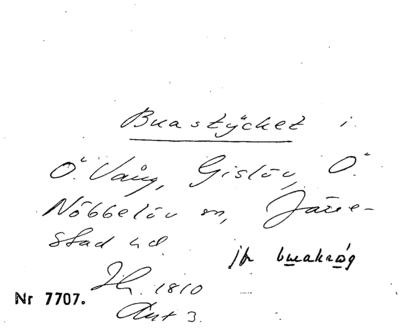 Buastycket i
Ö. Vång, Gislöv, Ö.
Nöbbelöv sn, Järre-
stad hd
jfr buakråg
Sk. 1810
Akt 3.
Nr 7707.